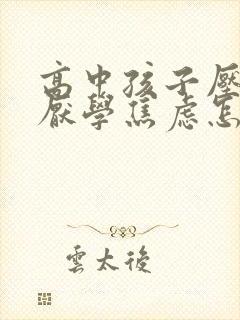 高中孩子壓
厭學焦虑怎
雲太後